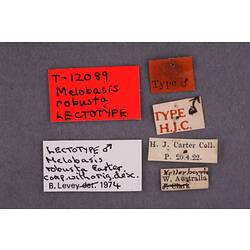 T-12089
Melobasis
robusta
LECTOTYPE
Type ♂
TYPE
H.J.C.
LECTOTYPE ♂
Melobasis
robusta Carter
comp. with orig. desc.
B. Levey det. 1974
H. J. Carter Coll.
P. 20.4.22.
W. Australia
J. Clark